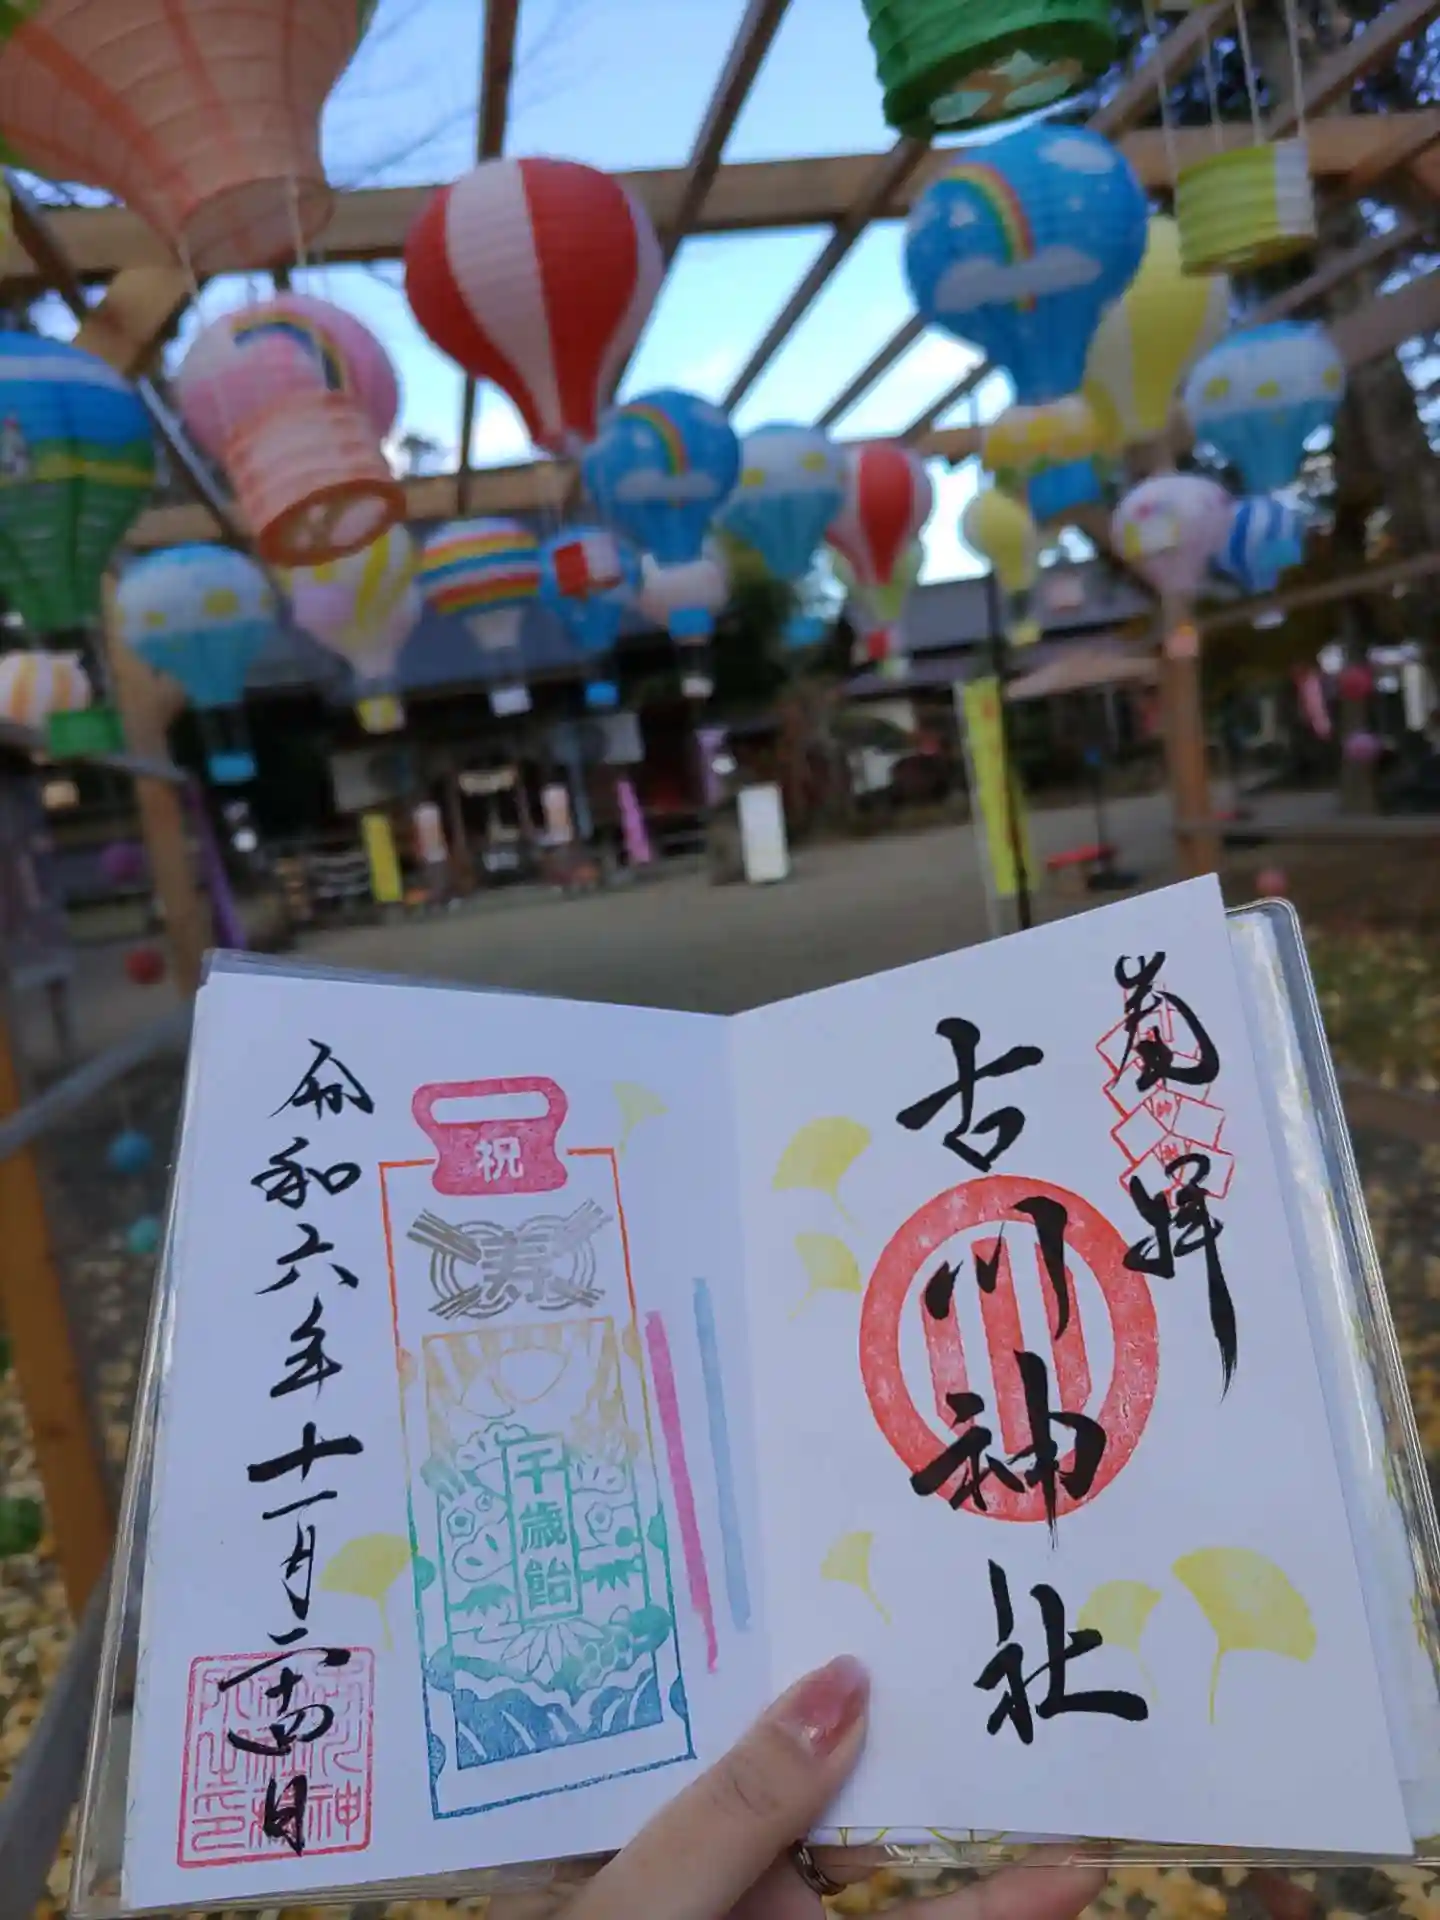 奉拝
古川神社
祝
寿
千歳飴
令和六年十一月二十四日